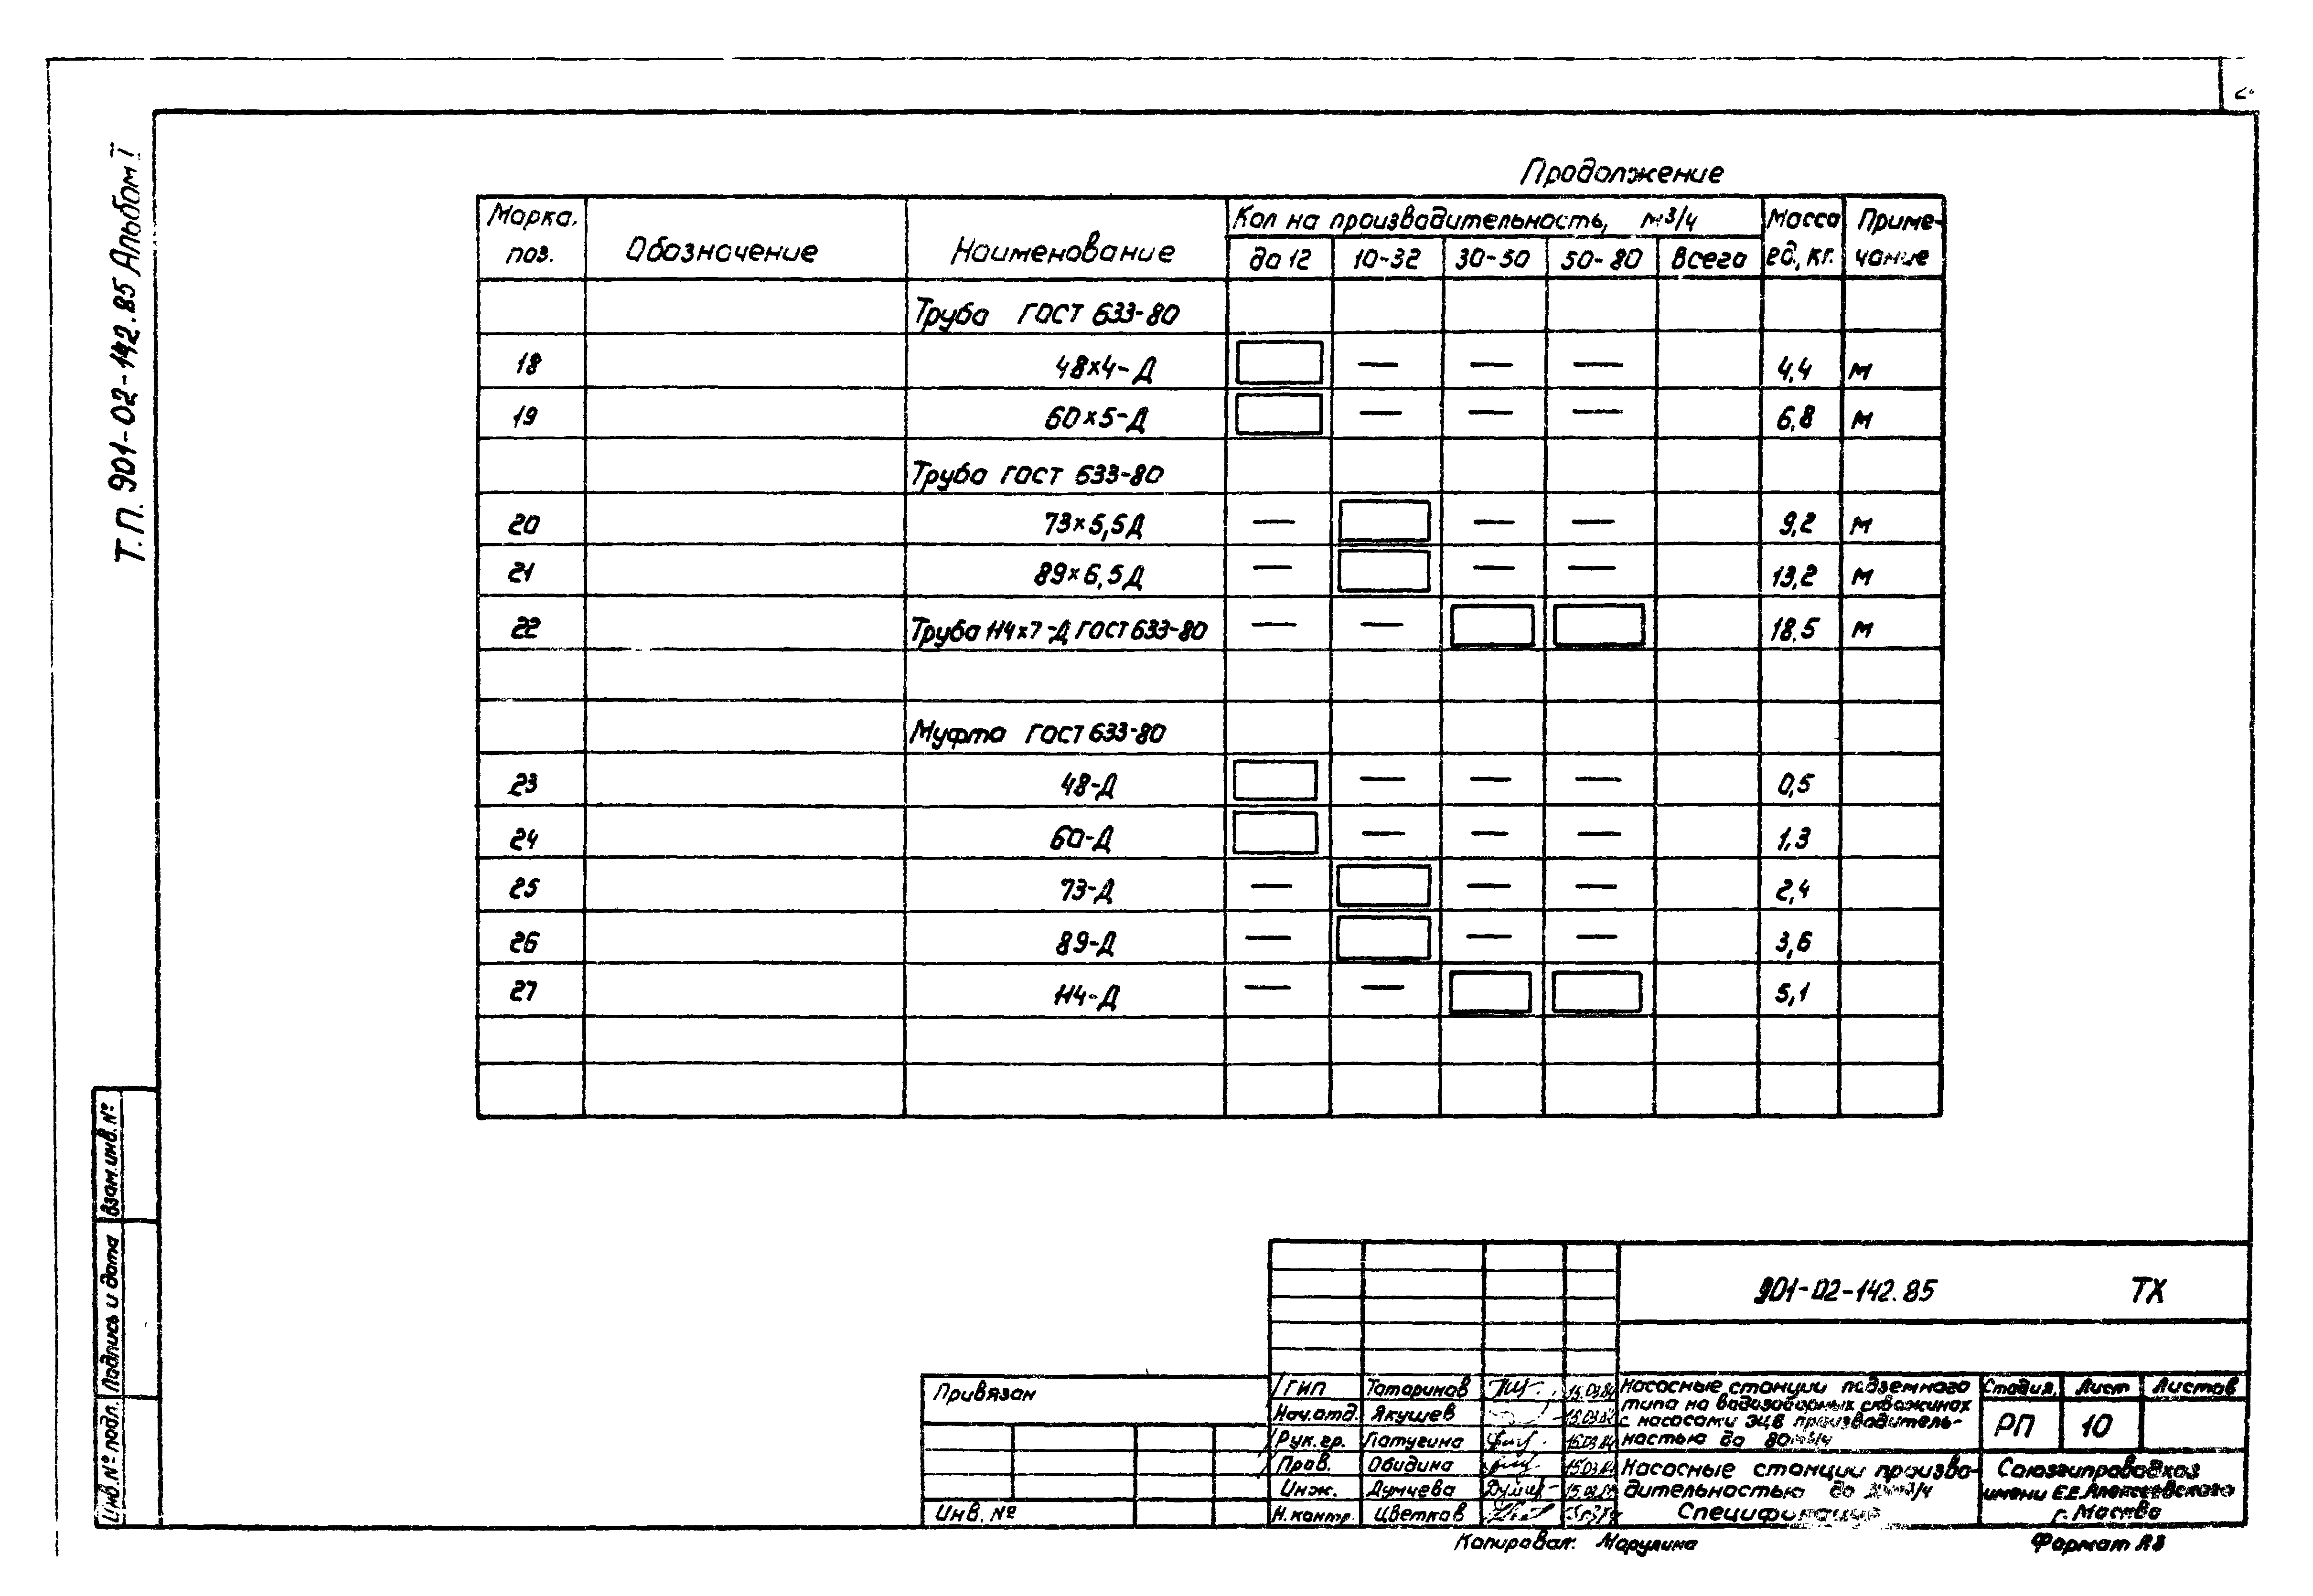 Т.П. 901-02-142.85 Альбом I
Продолжение
Марка. поз. Обозначение Наименование Кол на производительность, м³/ч Масса ед., кг. Приме-чание
до 12 10-32 30-50 50-80 Всего
Труба ГОСТ 633-80
18 48×4-Д — — — 4,4 м
19 60×5-Д — — — 6,8 м
Труба ГОСТ 633-80
20 73×5,5Д — — — 9,2 м
21 89×6,5Д — — — 13,2 м
22 Труба 114×7-Д ГОСТ 633-80 — — 18,5 м
Муфта ГОСТ 633-80
23 48-Д — — — 0,5
24 60-Д — — — 1,3
25 73-Д — — — 2,4
26 89-Д — — — 3,6
27 114-Д — — 5,1
Взам.инв.№
Подпись и дата
Инв.№ подл.
Привязан
Инв.№
901-02-142.85 ТХ
ГИП Татаринов 15.03.84
Нач.отд. Якушев 15.03.84
Рук.гр. Латугина 15.03.84
Пров. Обидина 15.03.84
Инж. Думчева 15.03.84
Н.контр. Цветков
Насосные станции подземного
типа на водозаборных скважинах
с насосами ЭЦВ производитель-
ностью до 80м³/ч
Стадия Лист Листов
РП 10
Насосные станции произво-
дительностью до
Спецификация
Союзгипроводхоз
имени Е.Е.Алексеевского
г. Москва
Копировал: Марулина
Формат А3